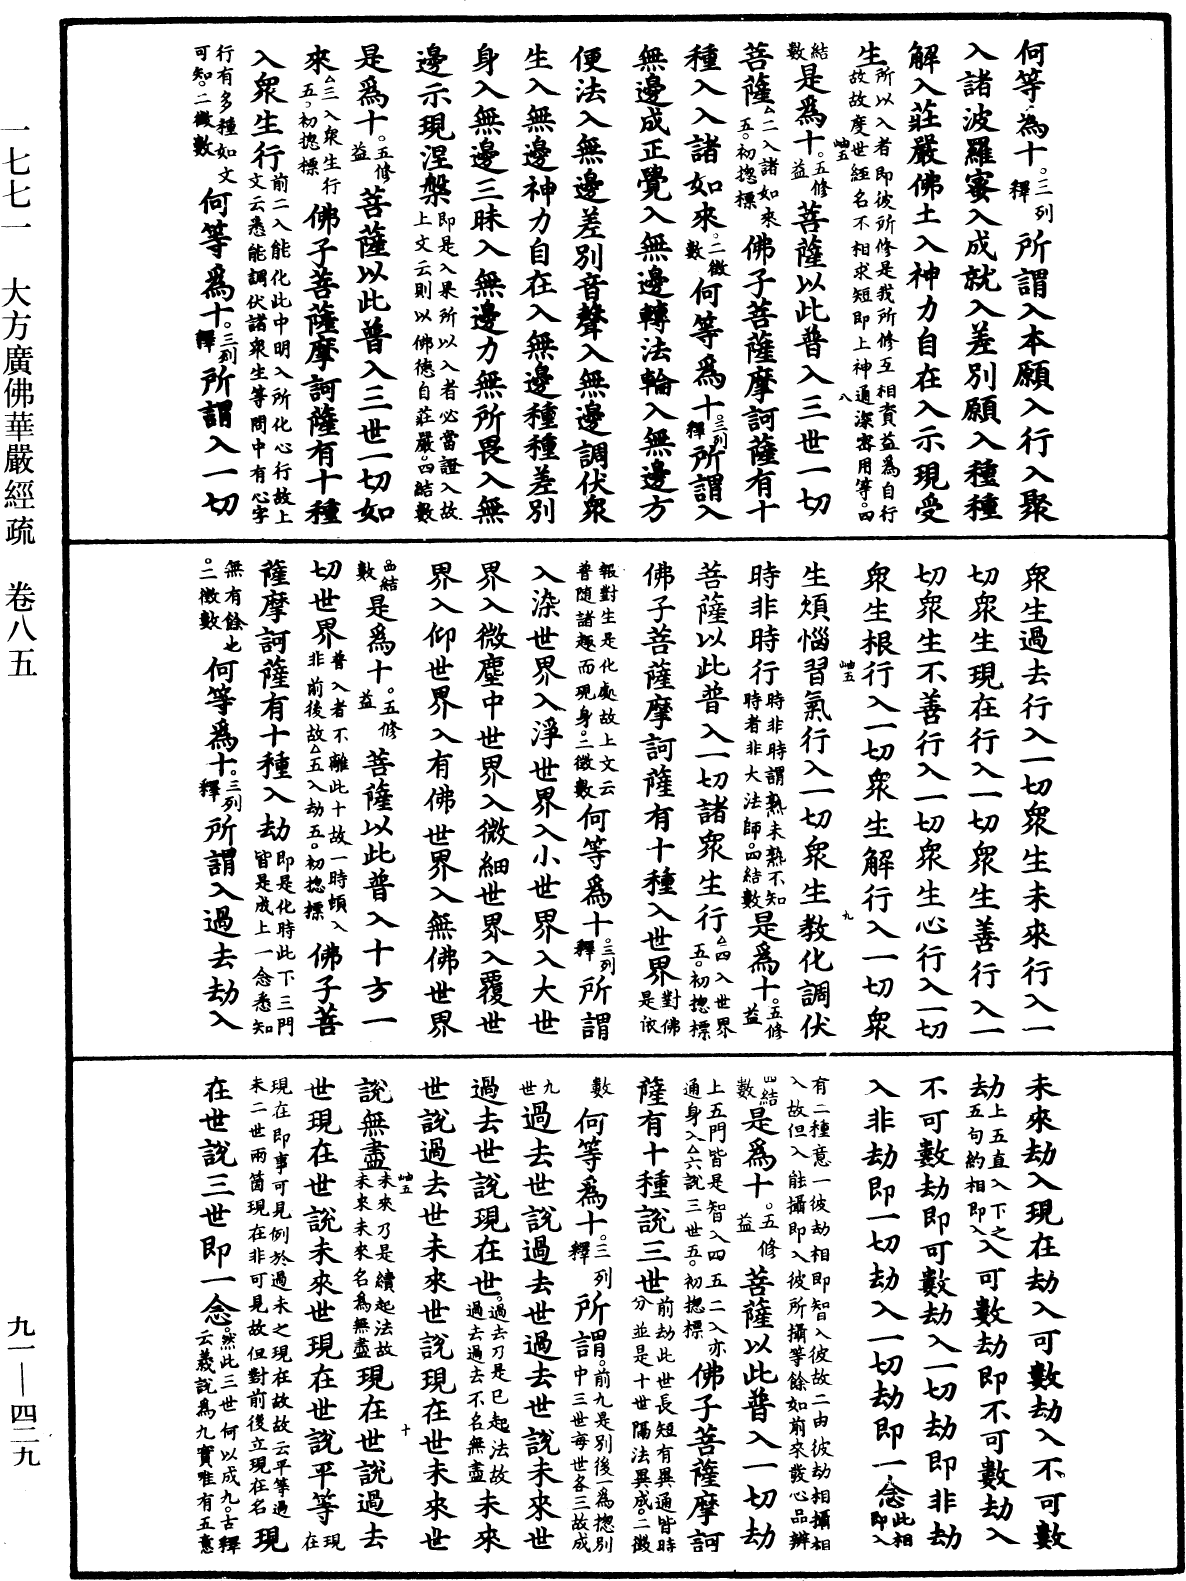 何等為十。三列釋所謂入本願入行入聚
入諸波羅蜜入成就入差別願入種種
解入莊嚴佛土入神力自在入示現受
生所以入者即彼所修是我所修互相資益為自行故故度世經名不相求短即上神通深密用等。四
結數是為十。五修益菩薩以此普入三世一切
菩薩△二入諸如來五。初總標佛子菩薩摩訶薩有十
種入入諸如來。二徵數何等為十。三列釋所謂入
無邊成正覺入無邊轉法輪入無邊方
便法入無邊差別音聲入無邊調伏眾
生入無邊神力自在入無邊種種差別
身入無邊三昧入無邊力無所畏入無
邊示現涅槃即是入果所以入者必當證入故上文云則以佛德自莊嚴。四結數
是為十。五修益菩薩以此普入三世一切如
來△三入眾生行五。初總標佛子菩薩摩訶薩有十種
入眾生行前二入能化此中明入所化心行故上文云悉能調伏諸眾生等問中有心字
行有多種如文可知。二徵數何等為十。三列釋所謂入一切
眾生過去行入一切眾生未來行入一
切眾生現在行入一切眾生善行入一
切眾生不善行入一切眾生心行入一切
眾生根行入一切眾生解行入一切眾
生煩惱習氣行入一切眾生教化調伏
時非時行時非時謂熟未熟不知時者非大法師。四結數是為十。五修益
菩薩以此普入一切諸眾生行△四入世界五。初總標
佛子菩薩摩訶薩有十種入世界對佛是依
報對生是化處故上文云普隨諸趣而現身。二徵數何等為十。三列釋所謂
入染世界入淨世界入小世界入大世
界入微塵中世界入微細世界入覆世
界入仰世界入有佛世界入無佛世界
四結數是為十。五修益菩薩以此普入十方一
切世界普入者不離此十故一時頓入非前後故△五入劫五。初總標佛子菩
薩摩訶薩有十種入劫即是化時此下三門皆是成上一念悉知
無有餘也。二徵數何等為十。三列釋所謂入過去劫入
未來劫入現在劫入可數劫入不可數
劫上五直入下之五句約相即入入可數劫即不可數劫入
不可數劫即可數劫入一切劫即非劫
入非劫即一切劫入一切劫即一念此相即入
有二種意一彼劫相即智入彼故二由彼劫相攝相入故但入能攝即入彼所攝等餘如前來發心品辨
四結數是為十。五修益菩薩以此普入一切劫
上五門皆是智入四五二入亦通身入△六說三世五。初總標佛子菩薩摩訶
薩有十種說三世前劫此世長短有異通皆時分並是十世隔法異成。二徵
數何等為十。三列釋所謂。前九是別後一為總別中三世每世各三故成
九世過去世說過去世過去世說未來世
過去世說現在世。過去乃是已起法故過去過去不名無盡未來
世說過去世未來世說現在世未來世
說無盡未來乃是續起法故未來未來名為無盡現在世說過去
世現在世說未來世現在世說平等現在
現在即事可見例於過未之現在故故云平等過未二世兩箇現在非可見故但對前後立現在名現
在世說三世即一念。然此三世何以成九。古釋云義說為九實唯有五意
岫五
八
岫五
九
岫五
十
一七七一　大方廣佛華嚴經疏　卷八五
九一—四二九